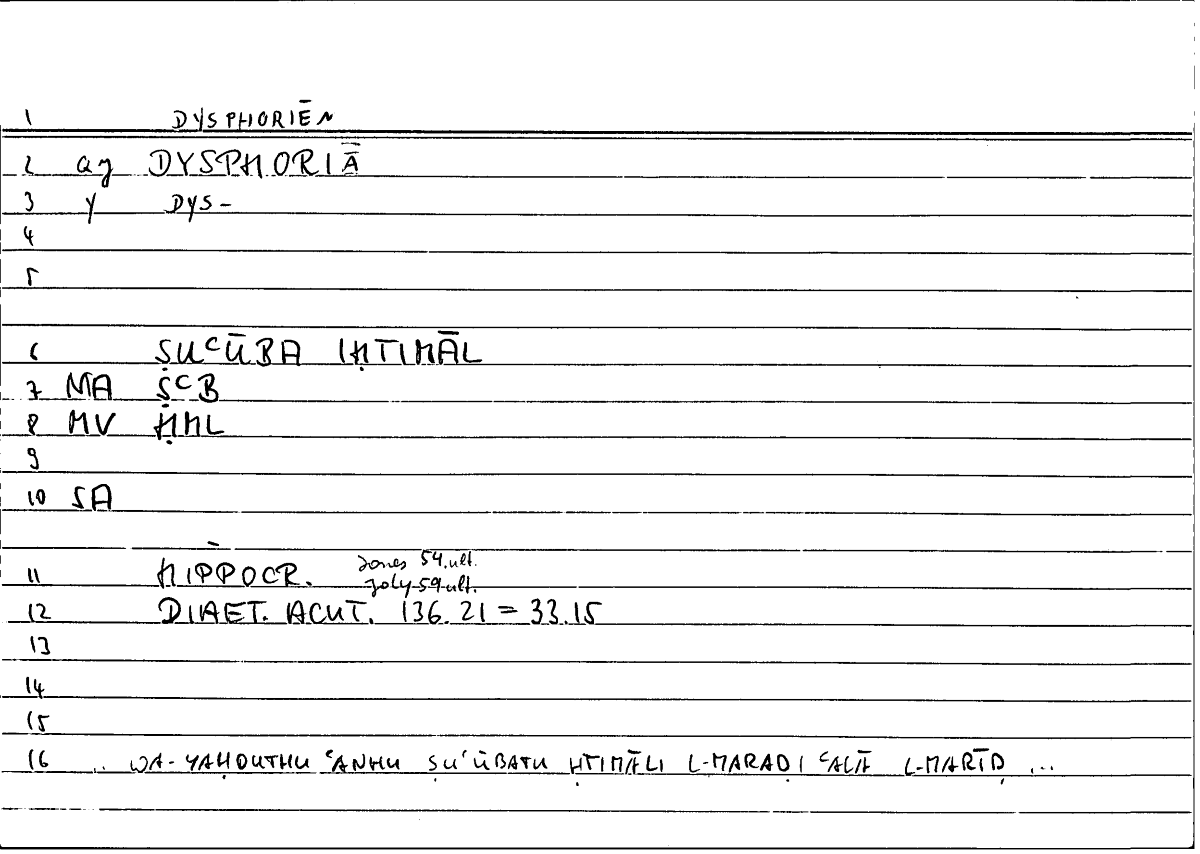 1 DYSPHORIĒN
2 ag DYSPHORIĀ
3 y DYS-
4
5
6 ṢUᶜŪBA IḤTIMĀL
7 MA ṢᶜB
8 MV ḤML
9
10 SA
11 HIPPOCR. Jones 54,ult. Joly 59 ult.
12 DIAET. ACUT. 136.21 = 33.15
13
14
15
16 .. WA-YAḤDUTHU ᶜANHU ṢUᶜŪBATU ḤTIMĀLI L-MARAḌI ᶜALĀ L-MARĪḌ ...